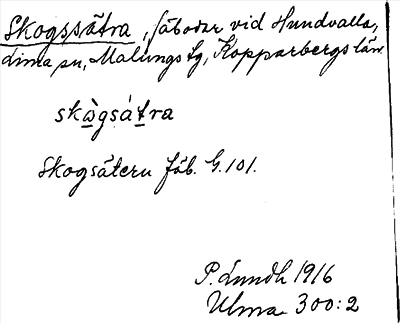 Skogssätra, fäbodar vid Hundvalla,
Lima sn, Malungs tg, Kopparbergs län.
skògsátra
Skogsäteru fäb. G. 101.
P. Lundh 1916
Ulma 300:2